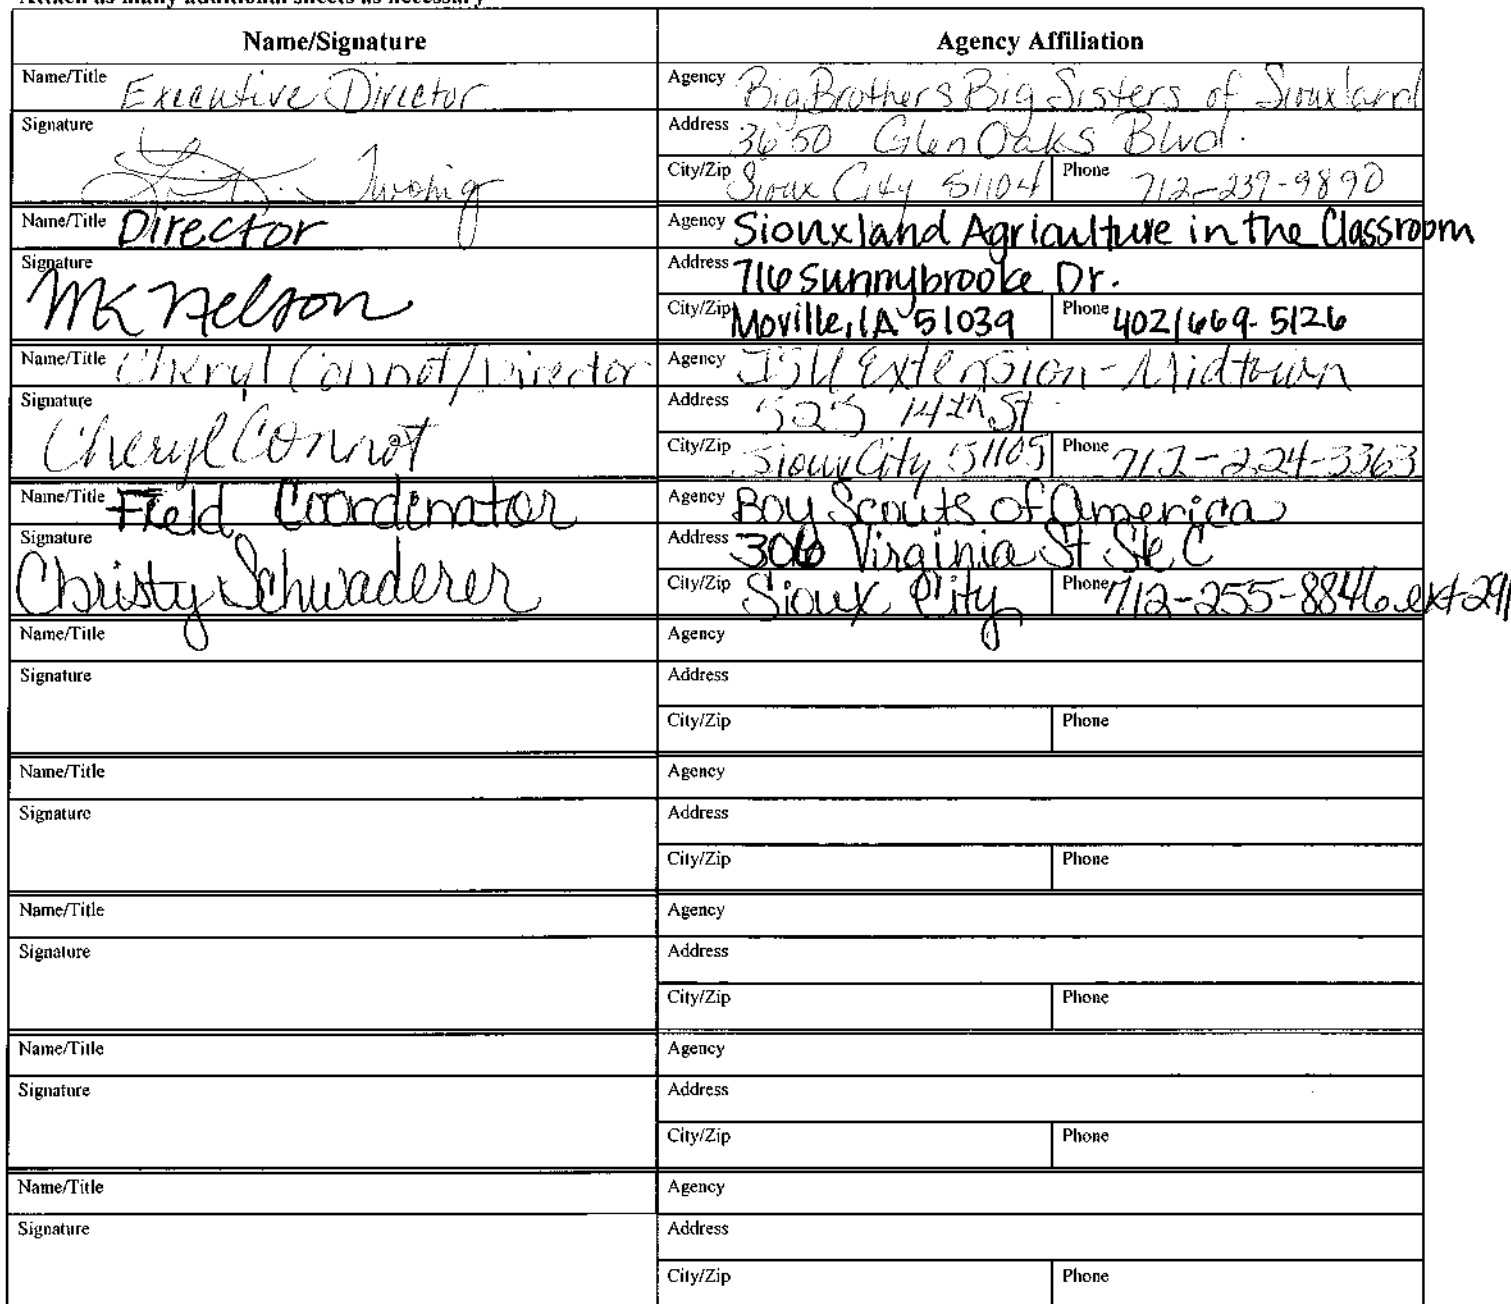 Attach as many additional sheets as necessary
Name/Signature Agency Affiliation
Name/Title Executive Director Agency Big Brothers Big Sisters of Siouxland
Signature Twohig Address 3650 Glen Oaks Blvd.
City/Zip Sioux City 51104 Phone 712-239-9890
Name/Title Director Agency Siouxland Agriculture in the Classroom
Signature MK Nelson Address 716 Sunnybrooke Dr.
City/Zip Moville, IA 51039 Phone 402/669-5126
Name/Title Cheryl Connot/Director Agency ISU Extension-Midtown
Signature Cheryl Connot Address 525 14th St
City/Zip Sioux City 51105 Phone 712-224-3363
Name/Title Field Coordinator Agency Boy Scouts of America
Signature Christy Schwaderer Address 306 Virginia St Ste C
City/Zip Sioux City Phone 712-255-8846 ext 291
Name/Title Agency
Signature Address
City/Zip Phone
Name/Title Agency
Signature Address
City/Zip Phone
Name/Title Agency
Signature Address
City/Zip Phone
Name/Title Agency
Signature Address
City/Zip Phone
Name/Title Agency
Signature Address
City/Zip Phone